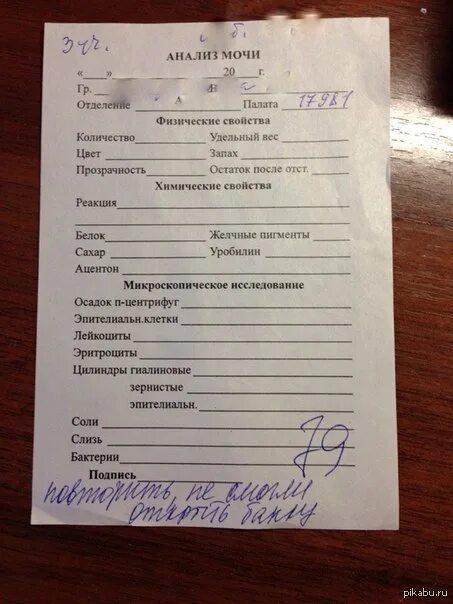 3 уч.
АНАЛИЗ МОЧИ
«___» 20__ г.
Гр.
Отделение А Палата 1 7981
Физические свойства
Количество Удельный вес
Цвет Запах
Прозрачность Остаток после отст.
Химические свойства
Реакция
Белок Желчные пигменты
Сахар Уробилин
Ацентон
Микроскопическое исследование
Осадок п-центрифуг
Эпителиальн.клетки
Лейкоциты
Эритроциты
Цилиндры гиалиновые
зернистые
эпителиальн.
Соли
Слизь
79
Бактерии
Подпись
повторить не смогли
открыть банку
pikabu.ru